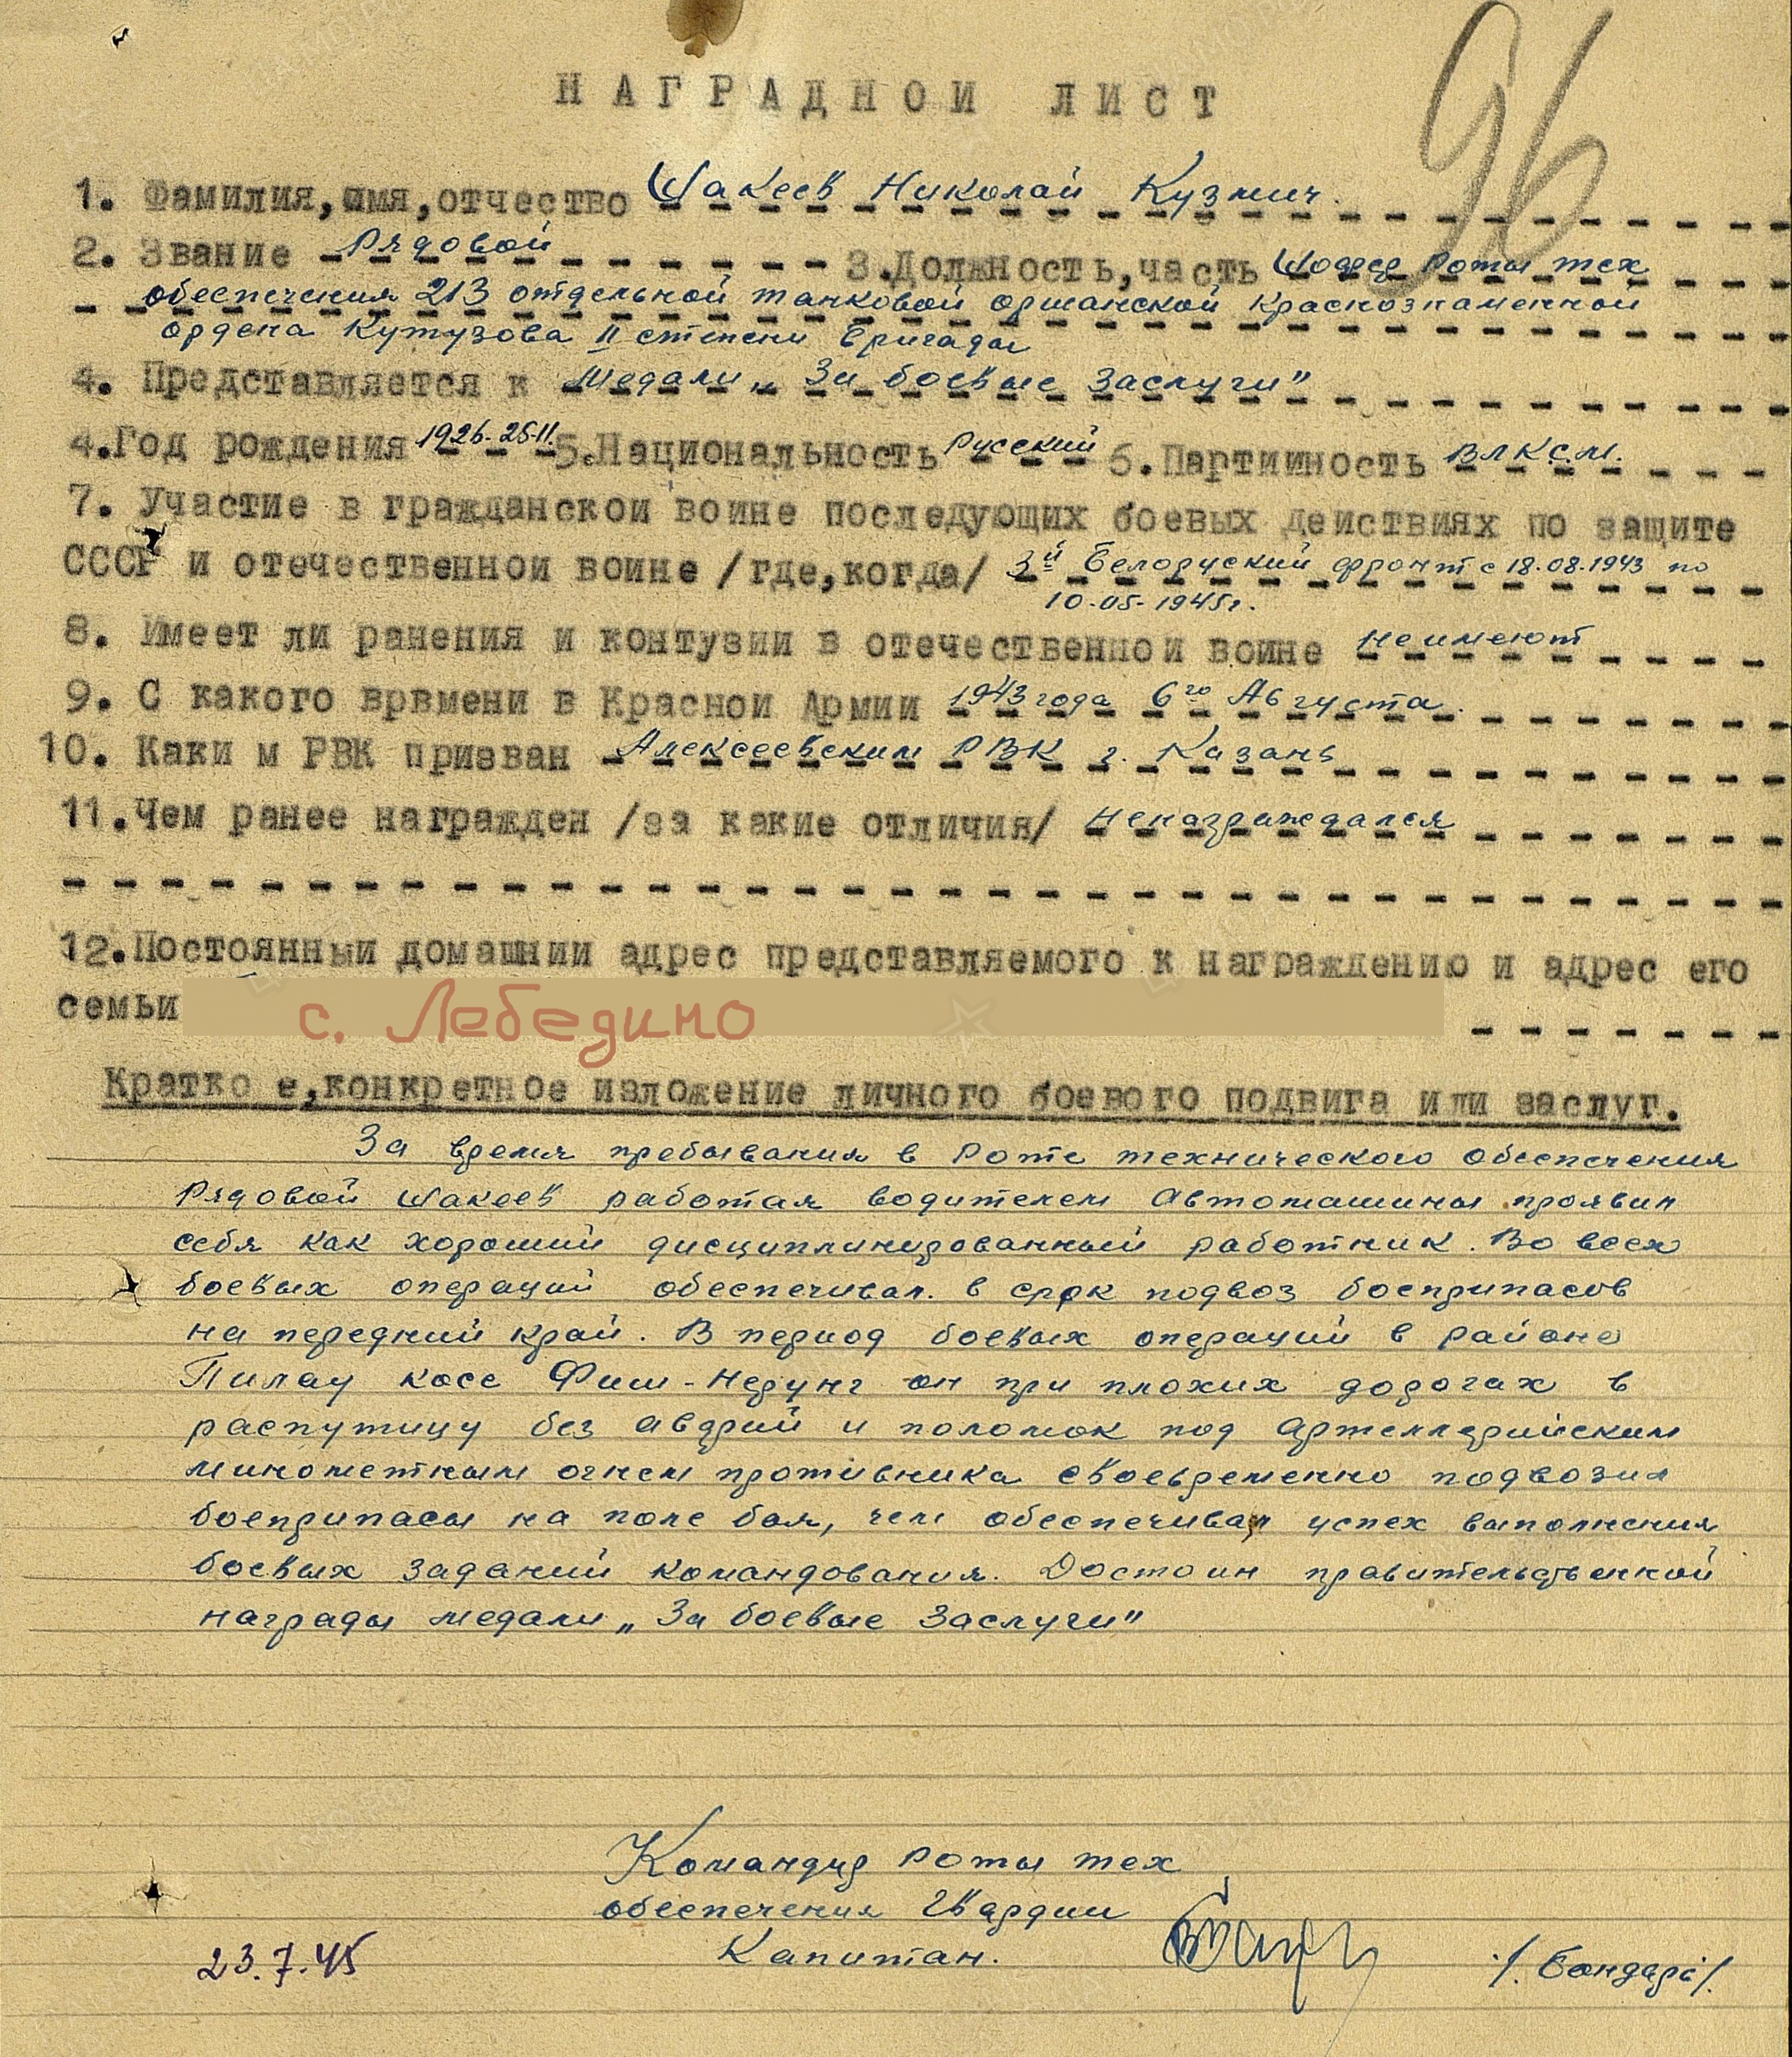 96
НАГРАДНОЙ ЛИСТ
1. Фамилия, имя, отчество Шакеев Николай Кузмич.
2. Звание Рядовой 3. Должность, часть Шофер Роты тех
обеспечения 213 отдельной танковой оршанской Краснознаменной
ордена Кутузова II степени бригады
4. Представляется к Медали „За боевые заслуги"
4. Год рождения 1926-25-11. 5. Национальность Русский 6. Партийность ВЛКСМ.
7. Участие в гражданской войне последующих боевых действиях по защите
СССР и отечественной войне /где, когда/ 3й Белоруский фронт с 18.08.1943 по
10-05-1945г.
8. Имеет ли ранения и контузии в отечественной войне Неимеют
9. С какого врвмени в Красной Армии 1943 года 6го Августа.
10. Каки м РВК призван Алексеевским РВК г. Казань
11. Чем ранее награжден /за какие отличия/ Ненаграждался
12. Постоянный домашний адрес представляемого к награждению и адрес его
семьи с. Лебедино
Кратко е, конкретное изложение личного боевого подвига или заслуг.
За время пребывания в Роте технического обеспечения
Рядовой Шакеев работая водителем Автомашины проявил
себя как хороший дисциплинированный работник. Во всех
боевых операций обеспечивал в срок подвоз боеприпасов
на передний край. В период боевых операций в районе
Пилау косе Фиш-Нерунг он при плохих дорогах в
распутицу без аврий и поломок под Артеллерийским
минометным огнем противника своевременно подвозил
боеприпасы на поле боя, чем обеспечивал успех выполнения
боевых заданий командования. Достоин правительственной
награды медали „За боевые заслуги"
Командир роты тех
обеспечения Гвардии
Капитан.
/Бондарь/.
23.7.45